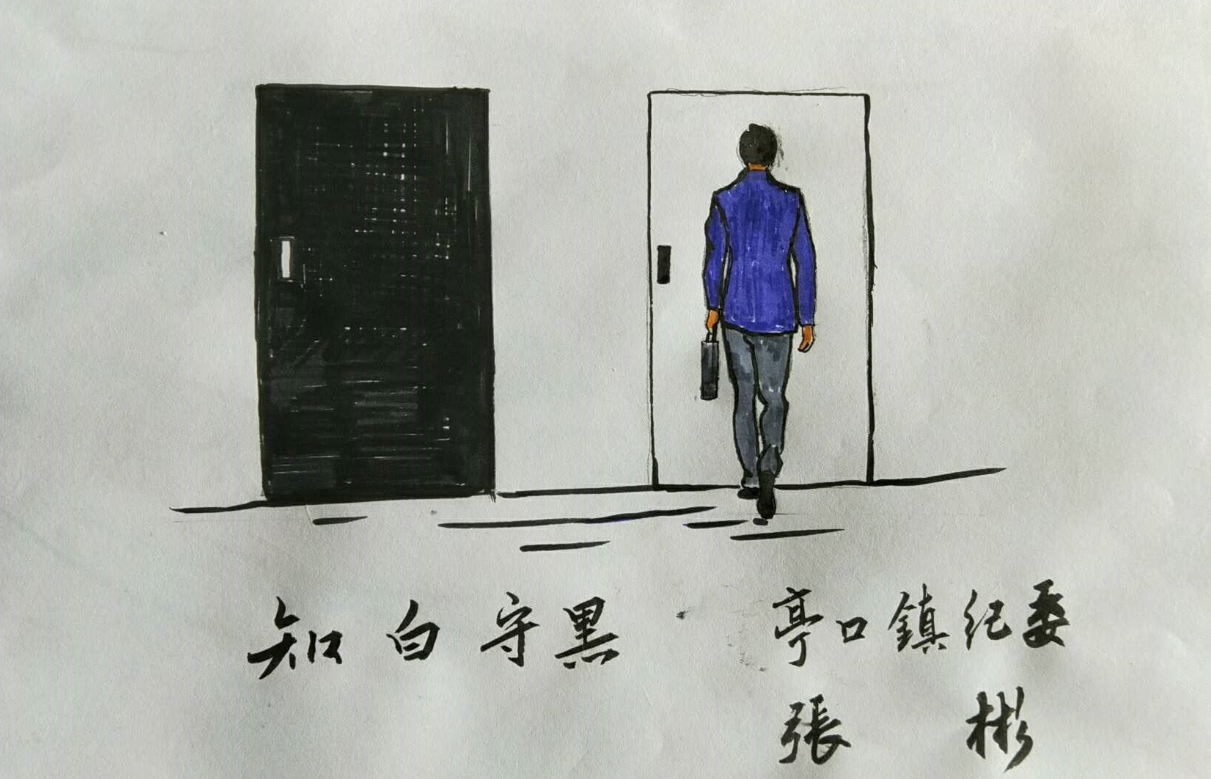 知白守黑
亭口鎮纪委
張彬